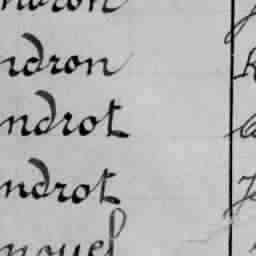 ndron
ndron
ndrot
ndrot
nouel